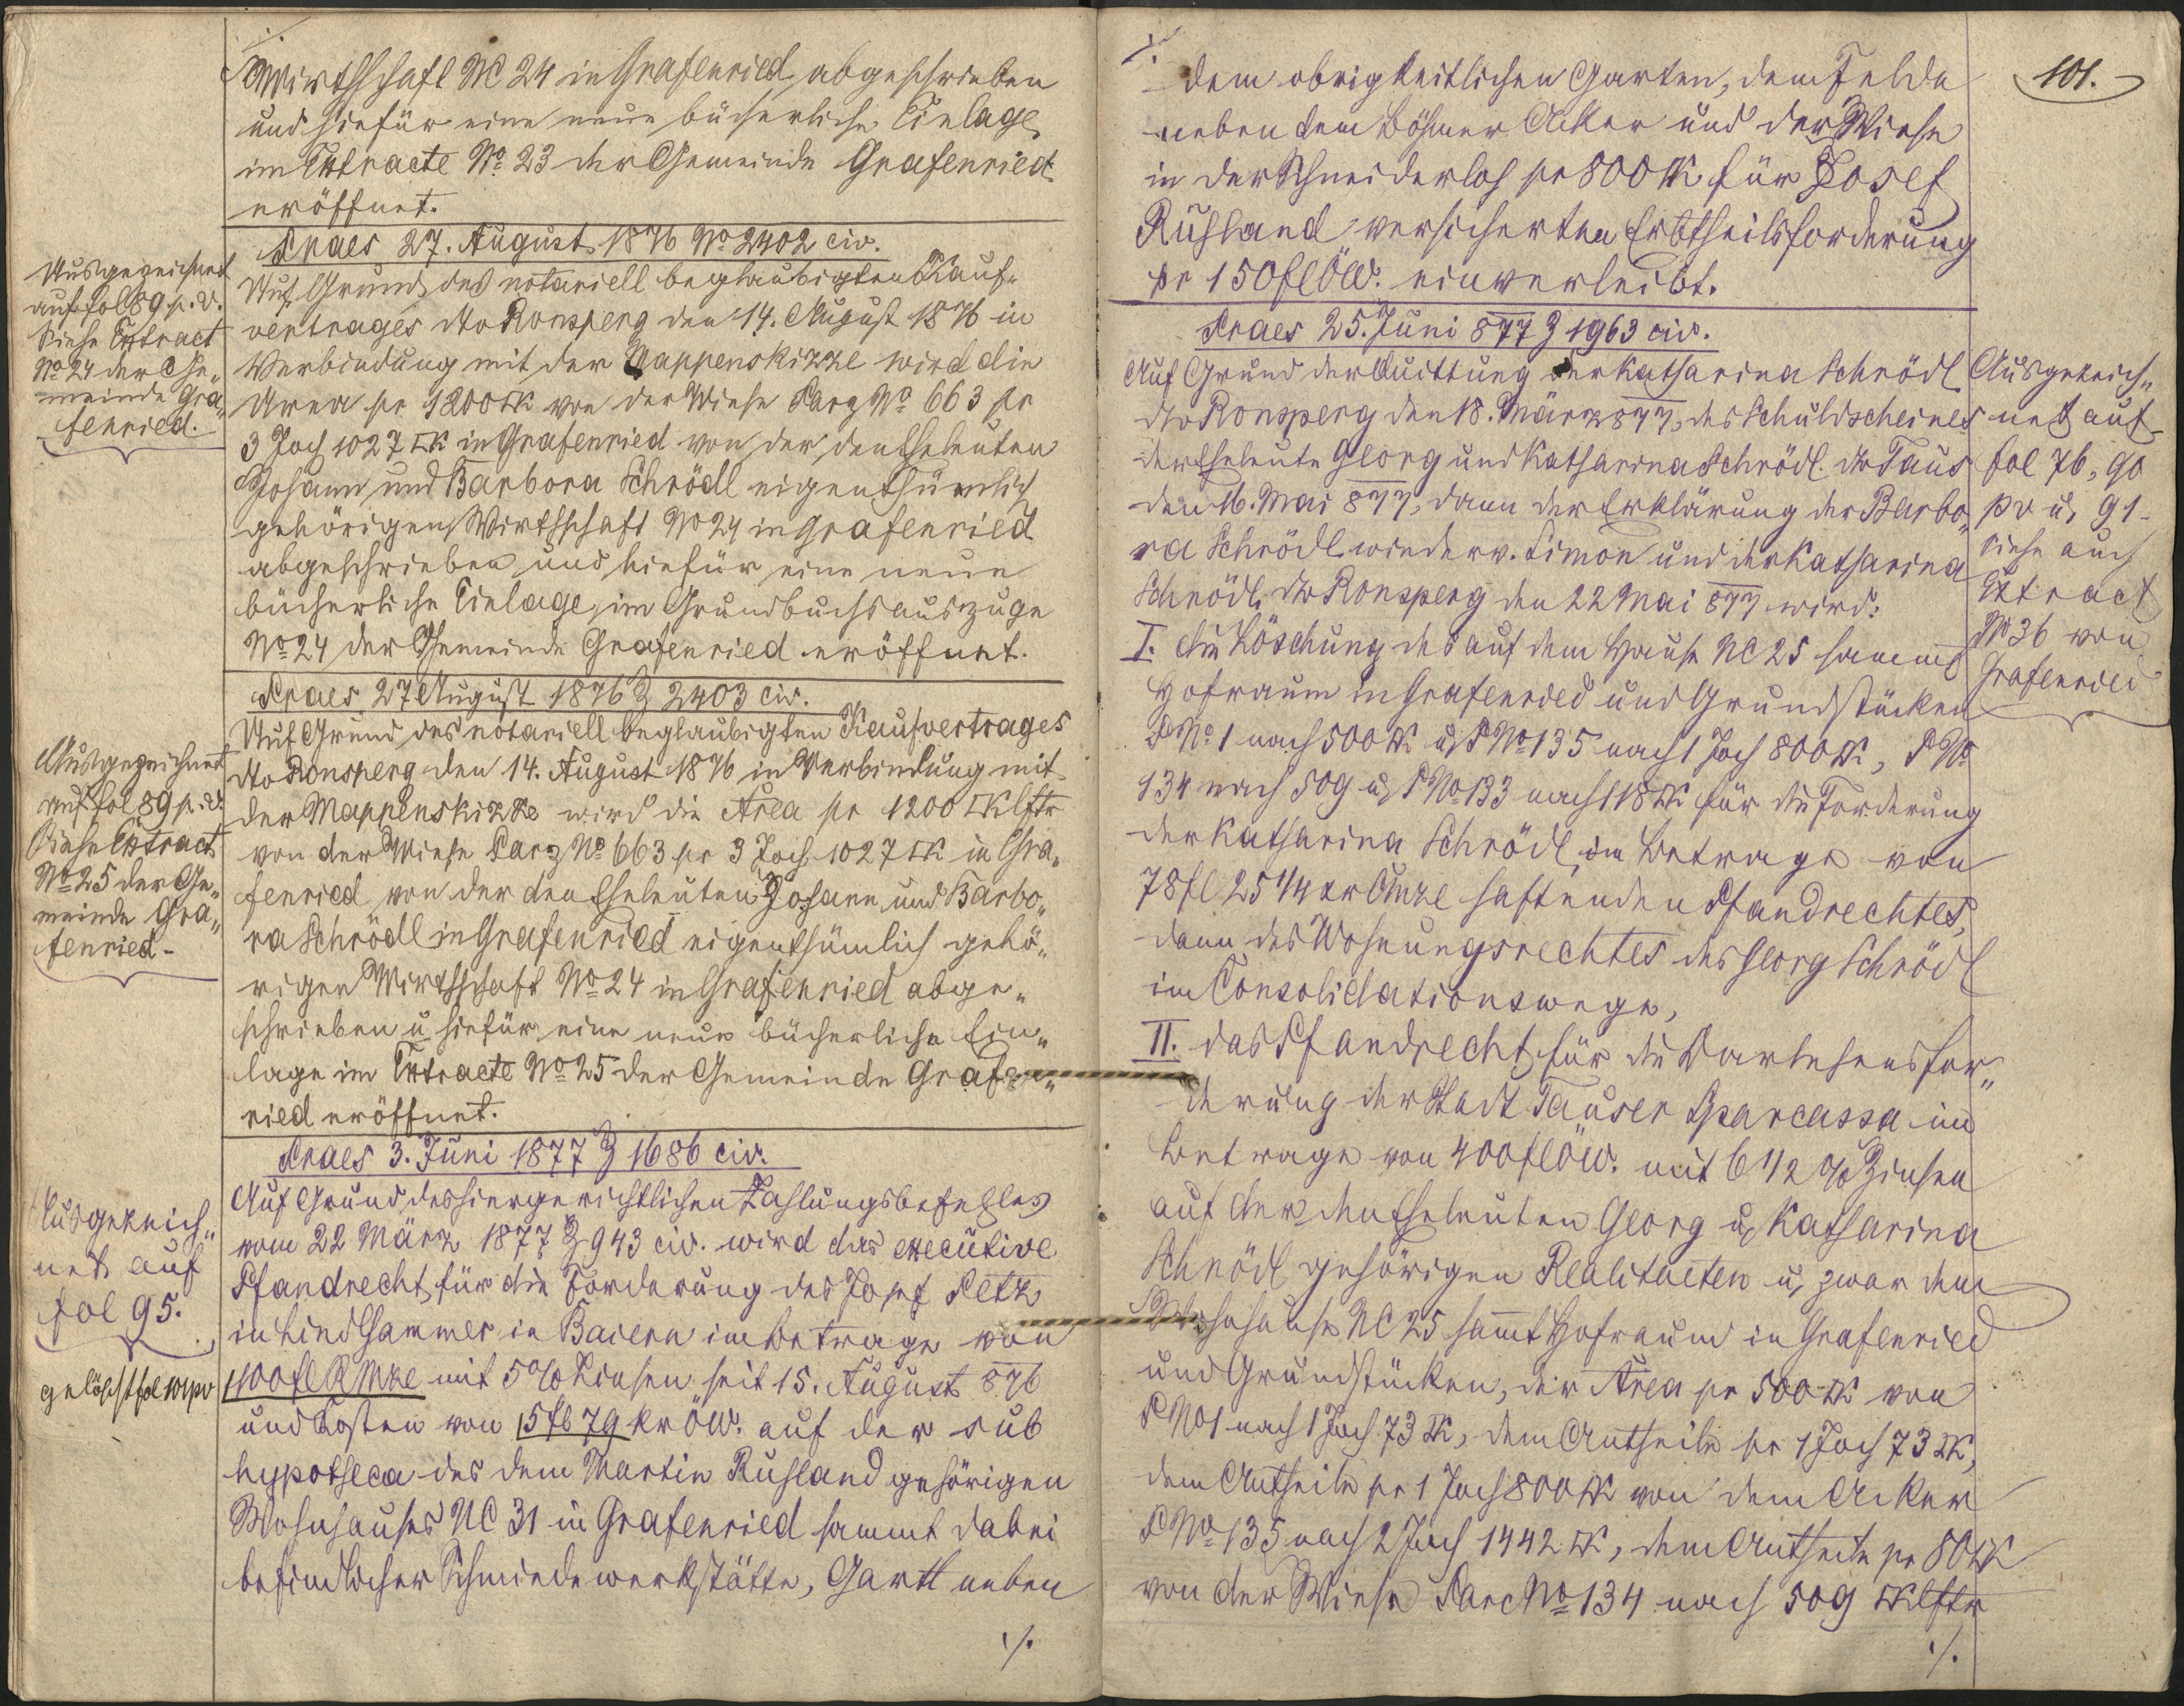 ./.
Wirthschaft NC 24 in Grafenried abgeschrieben
und hiefür eine neue bücherliche Einlage
im Extracte No 23 der Gemeinde Grafenried
eröffnet.
Praes 27. August 1876 No 2402 civ.
Ausgezeichnet
auf fol 89 p. v.
Siehe Extract
No 24 der Ge„
meinde Gra„
fenried.
Auf Grund des notariell beglaubigten Kauf„
vertrages dto Ronsperg den 14. August 1876 in
Verbindung mit der Mappenskizze wird die
Area pr 1200 □K von der Wiese Parz No 663 pr
3 Joch 1027 □K in Grafenried von der den Eheleuten
Johann und Barbora Schrödl eigenthümlich
gehörigen Wirthschaft No 24 in Grafenried
abgeschrieben und hiefür eine neue
bücherliche Einlage im Grundbuchsauszuge
No 24 der Gemeinde Grafenried eröffnet.
Praes 27 August 1876 Z 2403 civ.
Ausgezeichnet
auf fol 89 p. v.
Siehe Extract
No 25 der Ge„
meinde Gra„
fenried -
Auf Grund des notariell beglaubigten Kaufvertrages
dto Ronsperg den 14. August 1876 in Verbindung mit
der Mappenskizze wird die Area pr 1200 □Klftr
von der Wiese Parz No 663 pr 3 Joch 1027 □K in Gra„
fenried von der den Eheleuten Johann und Barbo„
ra Schrödl in Grafenried eigenthümlich gehö„
rigen Wirthschaft No 24 in Grafenried abge„
schrieben u hiefür eine neue bücherliche Ein„
lage im Extracte No 25 der Gemeinde Grafen„
ried eröffnet.
Praes 3. Juni 1877 Z 1686 civ.
Ausgezeich„
net auf
fol 95.
gelöscht fol 101 pv
Auf Grund des hiergerichtlichen Zahlungsbefehles
vom 22 März 1877 Z 943 civ. wird das executive
Pfandrecht für die Forderung des Josef Petz
in Lindhammer in Baiern im Betrage von
100 fl R Mze mit 5% Zinsen seit 15. August 876
und Kosten von 5 fl 79 kr ÖW. auf der sub
hypotheca des dem Martin Ruhland gehörigen
Wohnhauses NC 31 in Grafenried sammt dabei
befindlicher Schmiedewerkstätte, Gartl neben
./.
./.
101.
dem obrigkeitlichen Garten, dem Felde
neben dem Böhmer Acker und der Wiese
in der Schneiderloh pr 800 □K für Josef
Ruhland versicherten Erbtheilsforderung
pr 150 fl ÖW. einverleibt.
Praes 25. Juni 877 Z 1963 civ.
Ausgezeich„
net auf
fol 76, 90
pv u, 91 -
siehe auch
Extract
No 36 von
Grafenried
Auf Grund der Quittung der Katharina Schrödl
dto Ronsperg den 18. März 877, des Schuldscheines
der Eheleute Georg und Katharina Schrödl. dto Taus
den 16. Mai 877, dann der Erklärung der Barbo„
ra Schrödl wiederv. Simon und der Katharina
Schrödl, dto Ronsperg den 22 Mai 877 wird:
I. die Löschung des auf dem Hause NC 25 sammt
Hofraum in Grafenried und Grundstücken
P No 1 nach 500 □K u, P No 135 nach 1 Joch 800 □K, P No
134 nach 509 u, P No 133 nach 118 □K für die Forderung
der Katharina Schrödl im Betrage von
78 fl 25 1/4 xr CMze haftenden Pfandrechtes,
dann des Wohnungsrechtes des Georg Schrödl
im Consolidationswege,
II. das Pfandrecht für die Darlehensfor„
derung der Stadt Tauser Sparcassa im
Betrage von 400 fl ÖW. mit 6 1/2 % Zinsen
auf den den Eheleuten Georg u, Katharina
Schrödl gehörigen Realitaeten u, zwar dem
Wohnhause NC 25 sammt Hofraum in Grafenried
und Grundstücken, der Area pr 500 □K von
P No 1 nach 1 Joch 73 □K, dem Antheile pr 1 Joch 73 □K,
dem Antheile pr 1 Joch 800 □K von dem Acker
P No 135 nach 2 Joch 1442 □K, dem Antheile pr 80 □K
von der Wiese Parc No 134 nach 509 □Klftr
./.